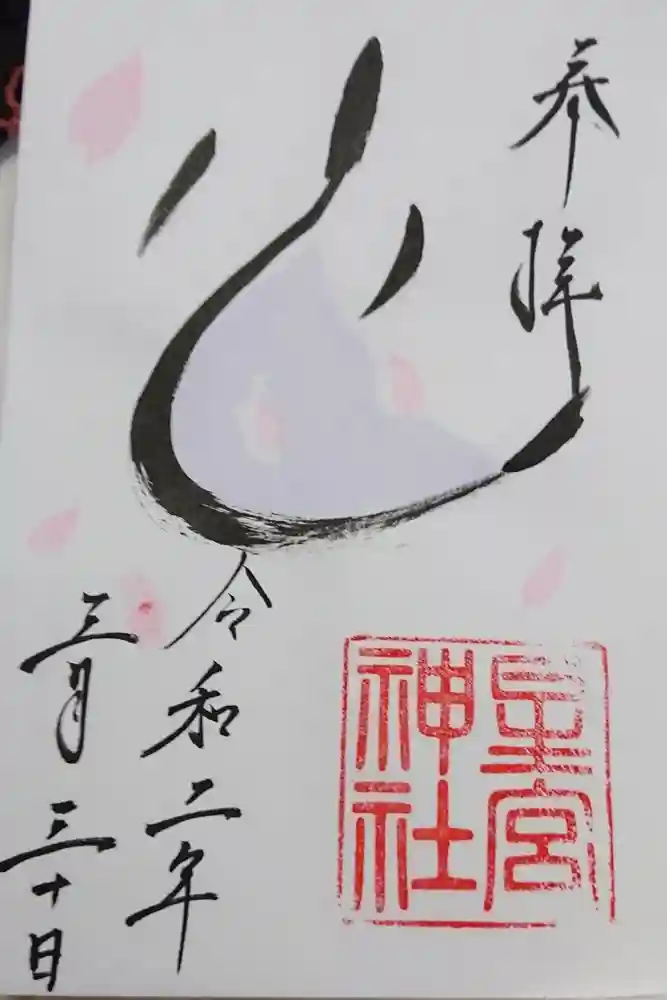 奉拝
心
星宮
神社
令和二年
三月三十日